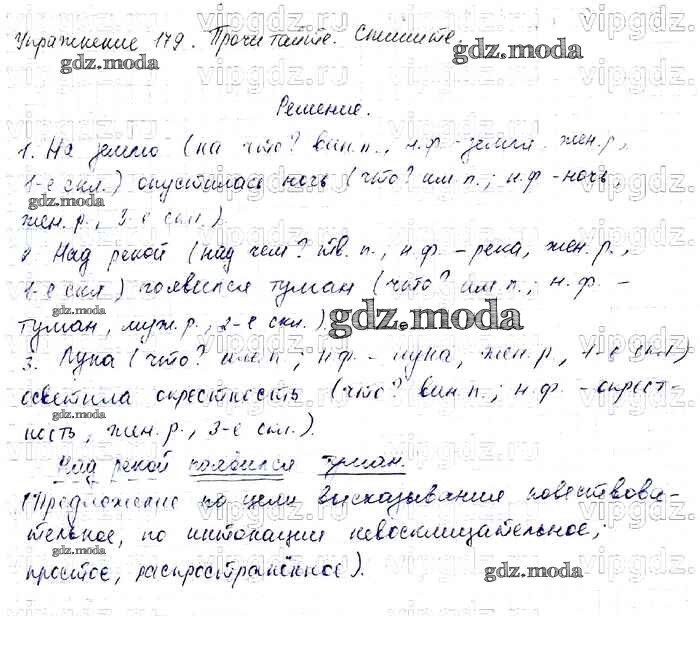 Упражнение 179. Прочитайте. Спишите.
Решение.
1. На землю (на что? вин.п., н.ф.-земля, жен.р.,
1-е скл.) опустилась ночь (что? им.п.; н.ф.-ночь,
жен.р., 3-е скл.).
2. Над рекой (над чем? тв.п.; н.ф.-река, жен.р.,
1-е скл.) появился туман (что? им.п.; н.ф.-
туман, муж.р., 2-е скл.).
3. Луна (что? им.п.; н.ф.-луна, жен.р., 1-е скл.)
осветила окрестность (что? вин.п.; н.ф.-окрест-
ность, жен.р., 3-е скл.).
Над рекой появился туман.
(Предложение по цели высказывания повествова-
тельное, по интонации невосклицательное,
простое, распространённое).
gdz.moda
vipgdz.ru